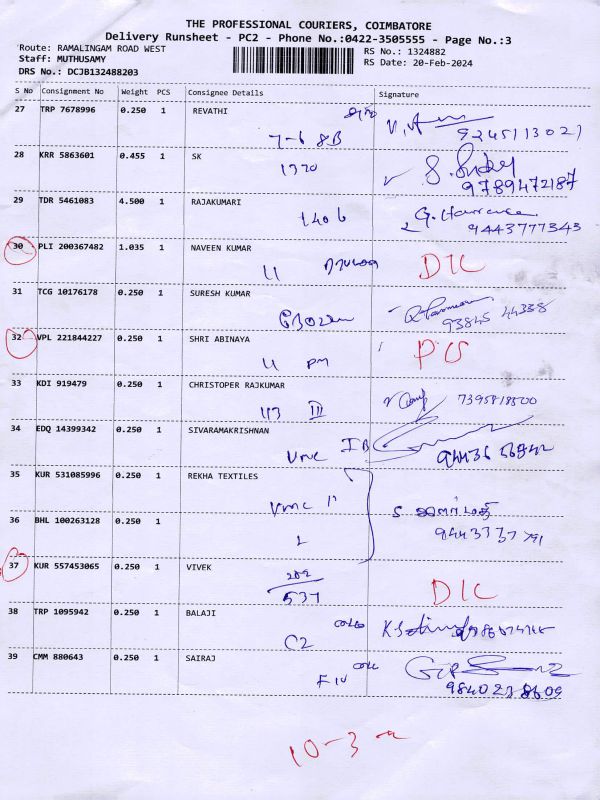 THE PROFESSIONAL COURIERS, COIMBATORE
Delivery Runsheet - PC2 - Phone No.:0422-3505555 - Page No.:3
Route: RAMALINGAM ROAD WEST
RS No.: 1324882
Staff: MUTHUSAMY
RS Date: 20-Feb-2024
DRS No.: DCJB132488203
S No Consignment No Weight PCS Consignee Details Signature
27 TRP 7678996 0.250 1 REVATHI
7-6 8B 9245113021
28 KRR 5863601 0.455 1 SK
1720 9789472187
29 TDR 5461083 4.500 1 RAJAKUMARI
1406 9443777343
30 PLI 200367482 1.035 1 NAVEEN KUMAR
11 DIC
31 TCG 10176178 0.250 1 SURESH KUMAR
93845 44338
32 VPL 221844227 0.250 1 SHRI ABINAYA
11 PM
33 KDI 919479 0.250 1 CHRISTOPER RAJKUMAR
113 III 7395818500
34 EDQ 14399342 0.250 1 SIVARAMAKRISHNAN
Vmc IB
35 KUR 531085996 0.250 1 REKHA TEXTILES
Vmc 11
36 BHL 100263128 0.250 1
37 KUR 557453065 0.250 1 VIVEK
537 DIC
38 TRP 1095942 0.250 1 BALAJI
C2
39 CMM 880643 0.250 1 SAIRAJ
9840238609
10-3